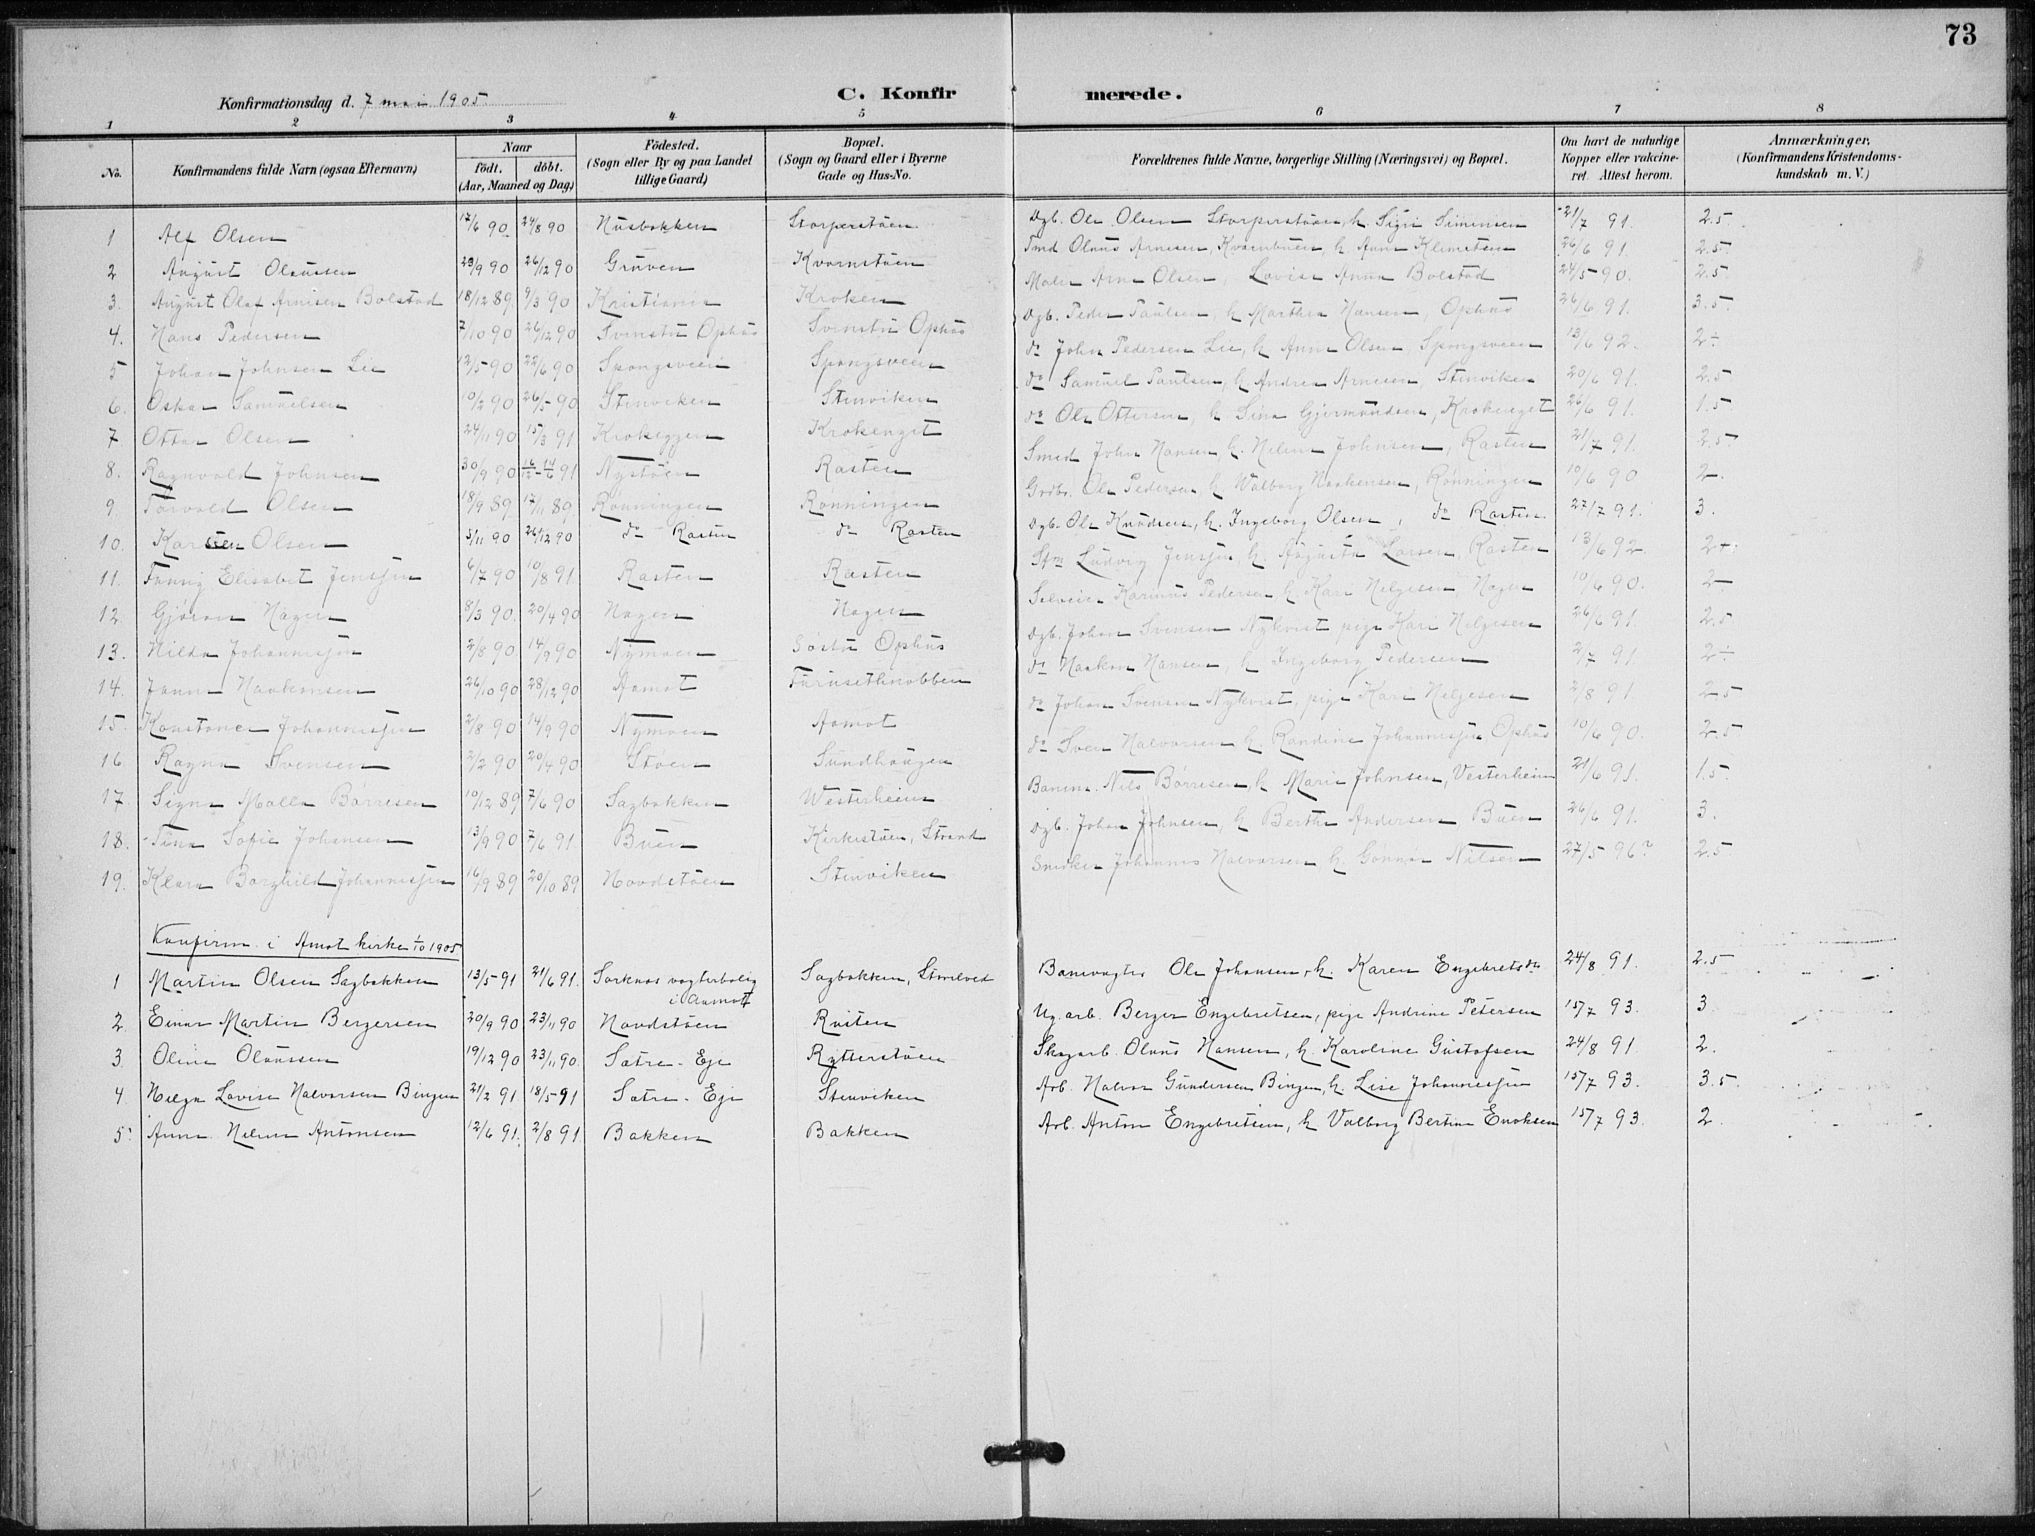 73
Konfirmationsdag d. 7 mai 1905. C. Konfir merede.
1 2 3 4 5 6 7 8
No. Konfirmandens fulde Navn (ogsaa Efternavn) Naar födt. döbt. (Aar, Maaned og Dag) Födested. (Sogn eller By og paa Landet tillige Gaard) Bopæl. (Sogn og Gaard eller i Byerne Gade og Hus-No. Forældrenes fulde Navne, borgerlige Stilling (Næringsvei) og Bopæl. Om havt de naturlige Kopper eller vakcineret. Attest herom. Anmærkninger. (Konfirmandens Kristendomskundskab m. V.)
1 Alf Olsen 17/6 90 24/8 90 Husbakken Storperstöen Dgb. Ole Olsen Storperstöen, h. Sigri Simensen 21/7 91. 2.5
2 August Olaussen 29/9 90 26/12 90 Gruven Kvernstöen Tmd Olaus Arnesen, Kvernbuen h. Anne Klemetsen 26/6 91. 2.5
3. August Olaf Arnesen Bolstad 18/12 89 9/3 90 Kristiania Kroken Maler Arne Olsen, Lovise Anna Bolstad 24/5 90. 2.5
4. Hans Pedersen 7/10 90 26/12 90 Svenstu Ophus Svenstu Ophus Dgb. Peder Paulsen, h Marthea Hansen, Ophus 26/6 91. 3.5
5 Johan Johnsen Lie 12/5 90 22/6 90 Spongsveen Spongsveen do John Pedersen Lie, h Anne Olsen, Spongsveen 13/6 92. 2÷
6. Oskar Samuelsen 10/2 90 26/5 90 Stenviken Stenviken do Samuel Paulsen, h Andrea Arnesen, Stenviken 20/6 91. 2.5
7 Ottar Olsen 24/11 90 15/3 91 Krokeggen Krokenget do Ole Ottersen, h Sina Gjermundsen, Krokenget 26/6 91. 1.5
8. Ragnvald Johnsen 30/9 90 16/12 - 14/6 91 Nystöen Rasten Smed John Hansen h. Helene Johnsen, Rasten 21/7 91. 2.5
9. Torvald Olsen 18/9 89 17/11 89 Rönningen Rönningen Grdbr. Ole Pedersen h Valborg Haakensen, Rönningen 10/6 90 2.
10. Karsten Olsen 5/11 90 26/12 90 do Rasten do Rasten Dgb. Ole Knudsen, h. Ingeborg Olsen, do Rasten 27/7 91. 3.
11. Fanny Elisabet Jenssen 6/7 90 10/8 91 Rasten Rasten Stm Ludvig Jenssen h. Augusta Larsen, Rasten 13/6 92 2+.
12. Gjöran Hagen 8/3 90. 20/4 90 Hagen Hagen Selveier Karinus Pedersen, h Kari Helgesen, Hagen 10/6 90. 2
13. Hilda Johannessen 2/8 90 14/9 90 Nymoen Söstu Ophus Dgb. Johan Svensen Nykvist pige Kari Helgesen 26/6 91. 2.5
14. Janna Haakensen 26/10 90 28/12 90 Aamot Furusethnobben do Haakon Hansen, h Ingeborg Pedersen 2/7 91. 2÷
15. Konstance Johannessen 2/8 90 14/9 90 Nymoen Aamot do Johan Svensen Nykvist, pige Kari Helgesen 2/8 91. 2.5
16 Ragna Svensen 2/2 90 20/4 90 Stöen Sundhaugen do Sven Halvorsen h. Randine Johannessen, Ophus 10/6 90. 2.5
17 Signe Malla Börresen 10/12 89 7/6 90 Sagbakken Westerheim Banem. Nils Börresen, h Marie Johnsen, Vesterheim 21/6 91. 1.5
18. Tina Sofie Johansen 13/9 90 7/6 91 Buen Kirkestöen, Strand Dgb. Johan Johnsen, h Berthe Andersen, Buen 26/6 91. 3.
19. Klara Borghild Johannessen 16/9 89 20/10 89 Hovdstöen Stenviken Snedker Johannes Halvorsen h. Gunnor Nilsen 27/5 96? 2.5
Konfirm. i Amot kirke 1/10 1905
1 Martin Olsen Sagbakken 13/5 91 21/6 91. Sorknes vogterbolig i Aamot Sagbakken, Storelved Banevogter Ole Johansen, h. Karen Engebretsdr 24/8 91. 2.5
2 Einar Martin Bergersen 20/9 90 23/11 90 Hovdstöen Kviten Ug. arb. Berger Engebretsen, pige Andrine Petersen 15/7 93. 3
3 Oline Olaussen 19/12 90 23/11 90. Sætre - Eje Rytterstöen Skogarb. Olaus Hansen, h. Karoline Gustafsen 24/8 91. 2.
4 Helga Lovise Halvorsen Bingen 21/2 91 18/5 91 Sætre - Eje Stenviken Arb. Halvor Gundersen Bingen, h. Lise Johannessen 15/7 93. 3.5
5 Anna Helene Antonsen 12/6 91. 2/8 91 Bakken Bakken Arb. Anton Engebretsen, h Valborg Bertine Enoksen 15/7 93. 2